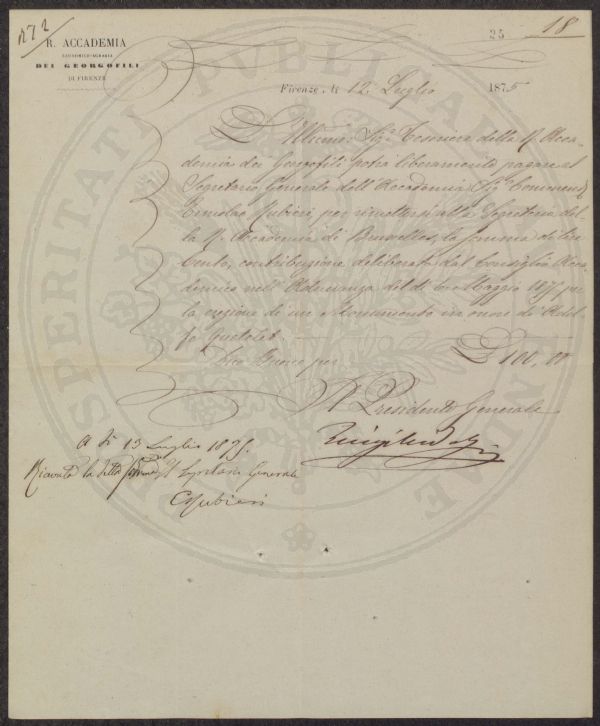 172
18
25
R. ACCADEMIA
ECONOMICO-AGRARIA
DEI GEORGOFILI
DI FIRENZE
Firenze, li 12. Luglio 1875
L'Illmo. Sigr. Tesoriere della R. Acca-
demia dei Georgofili potrà liberamente pagare al
Segretario Generale dell'Accademia Sigr. Commend.
Ermolao Rubieri, per rimettersi alla Segreteria del-
la R. Accademia di Bruxelles, la somma di Lire
Cento, contribuzione deliberata dal Consiglio Acca-
demico nell'Adunanza del dì Maggio 1875 per
la erezione di un Monumento in onore di Adol-
fo Quetelet.
Dico Buono per £ 100, 00
Il Presidente Generale
A dì 13 Luglio 1875.
Ricevuto la detta somma Il Segretario Generale
E Rubieri
PROSPERITATI PUBLICAE AUGENDAE